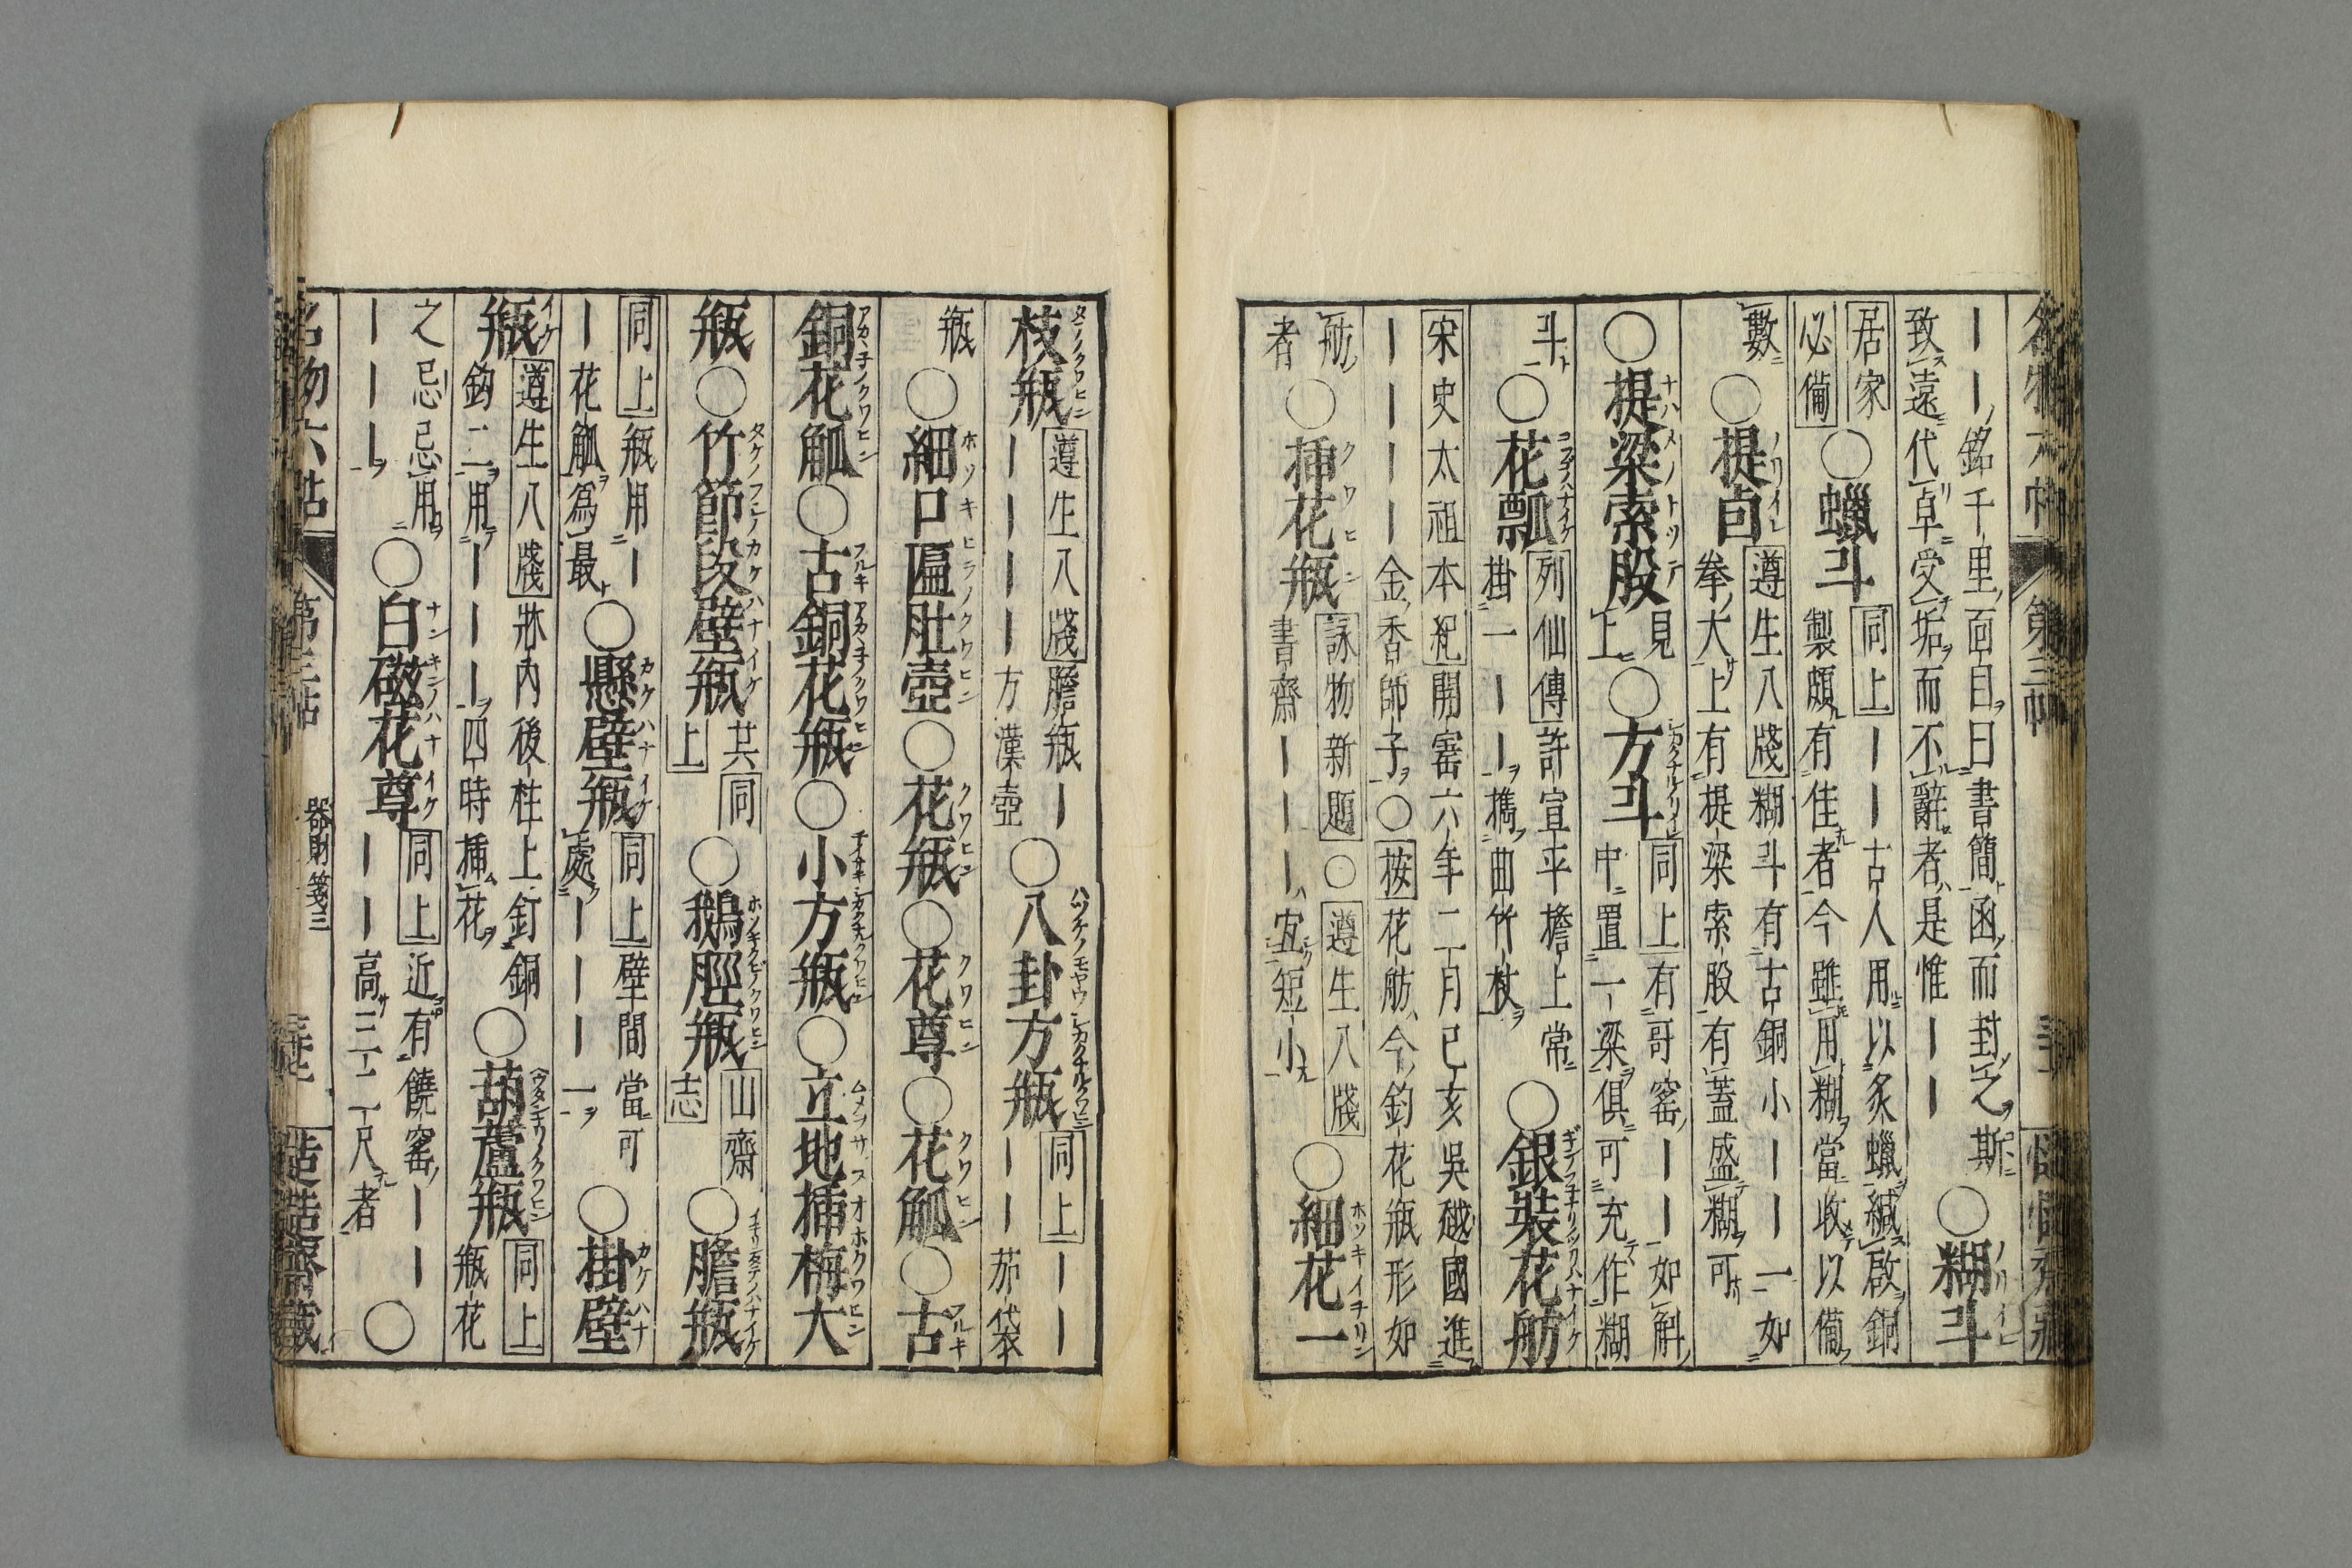 第三帖
｜｜｜銘千里面目曰書簡函而封之斯
致遠代卓受垢而不辭者是惟｜｜
○糊斗
居家
必備
○蠟斗
同上｜｜古人用以炙蠟緘啟銅
製頗有佳者今雖用糊當收以備
數
○提卣
遵生八牋糊斗有古銅小｜｜一如
拳大上有提梁索股有蓋盛糊可
○提梁索股
見
上
○方斗
同上有哥窑｜｜如斛
中置一梁俱可充作糊
斗
○花瓢
列仙傳許宣平檐上常
掛一｜｜擕曲竹杖
○銀裝花舫
宋史太祖本紀開窰六年二月己亥吳越國進
｜｜｜｜金香師子○按花舫今釣花瓶形如
舫
者
○挿花瓶
詠物新題○遵生八牋
書齋｜｜｜宜短小
○細花一
枝瓶
遵生八牋膽瓶｜
｜｜｜｜方漢壺
○八卦方瓶
同上｜｜
｜｜茄袋
瓶
○細口匾肚壺○花瓶○花尊○花觚○古
銅花觚○古銅花瓶○小方瓶○立地挿梅大
瓶○竹節段壁瓶
共同
上
○鵝脛瓶
山齋
志
○膽瓶
同上瓶用｜
｜花觚為最
○懸壁瓶
同上壁間當可
處｜｜｜一
○掛壁
瓶
遵生八牋牀內後柱上釘銅
鈎二用｜｜｜四時挿花
○葫蘆瓶
同上
瓶花
之忌忌用
｜｜｜｜
○白磁花尊
同上近有饒窑｜｜
｜｜｜高三二尺者
○
名物六帖 第三帖 器財箋三